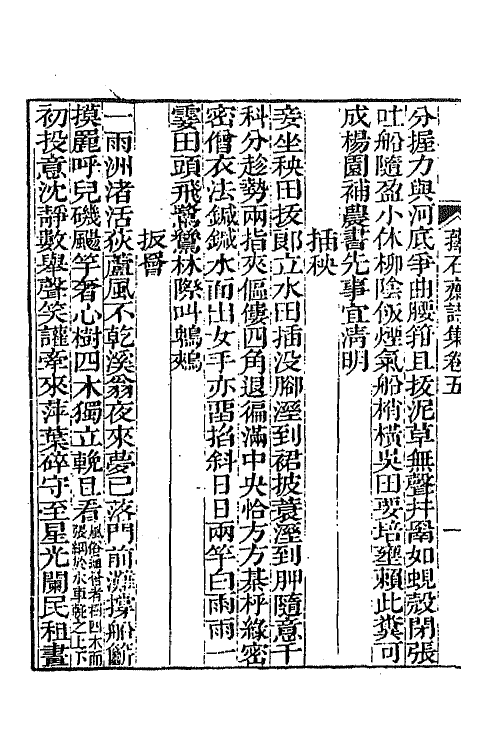 蘀石齋詩集卷五
一
分握力與河底爭曲腰箝且扳泥草無聲幷罱如蜆殼閉張
吐船隨盈小休柳陰飯煙氣船梢橫吳田要培壅賴此糞可
成楊園補農書先事宜淸明
插秧
妾坐秧田拔郞立水田插没腳溼到裙披蓑溼到胛隨意千
科分趁勢兩指夾傴僂四角退徧滿中央恰方方棊枰綠密
密僧衣法鍼鍼水面出女手亦留掐斜日日兩竿白雨雨一
霎田頭飛鷺鷥林際叫鵊
扳罾
一雨洲渚活荻蘆風不乾溪翁夜來夢已落門前灘撐船斷
摸麗呼兒磯颺竿奢心樹四木獨立輓且看
風俗
者樹四木而
張網於水車輓之上下
初投意沈靜數舉聲笑讙牽來萍葉碎守至星光闌民租畫